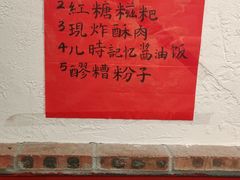 2红糖糍粑
3現炸酥肉
4儿時記忆醬油饭
5醪糟粉子